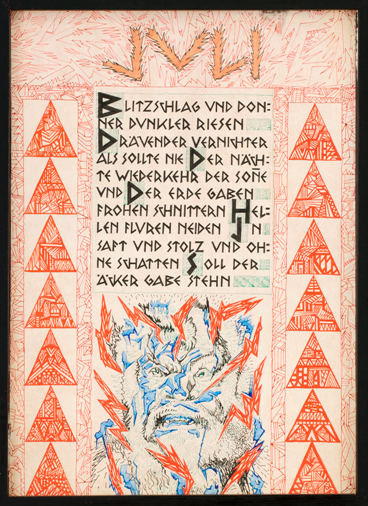 JVLI
BLITZSCHLAG VND DON=
NER DVNKLER RIESEN
DRÄVENDER VERNICHTER
ALS SOLLTE NIE DER NÄCH=
TE WIEDERKEHR DER SOÑE
VND DER ERDE GABEN
FROHEN SCHNITTERN HEL=
LEN FLVREN NEIDEN JN
SAFT VND STOLZ VND OH=
NE SCHATTEN SOLL DER
ÄCKER GABE STEHN